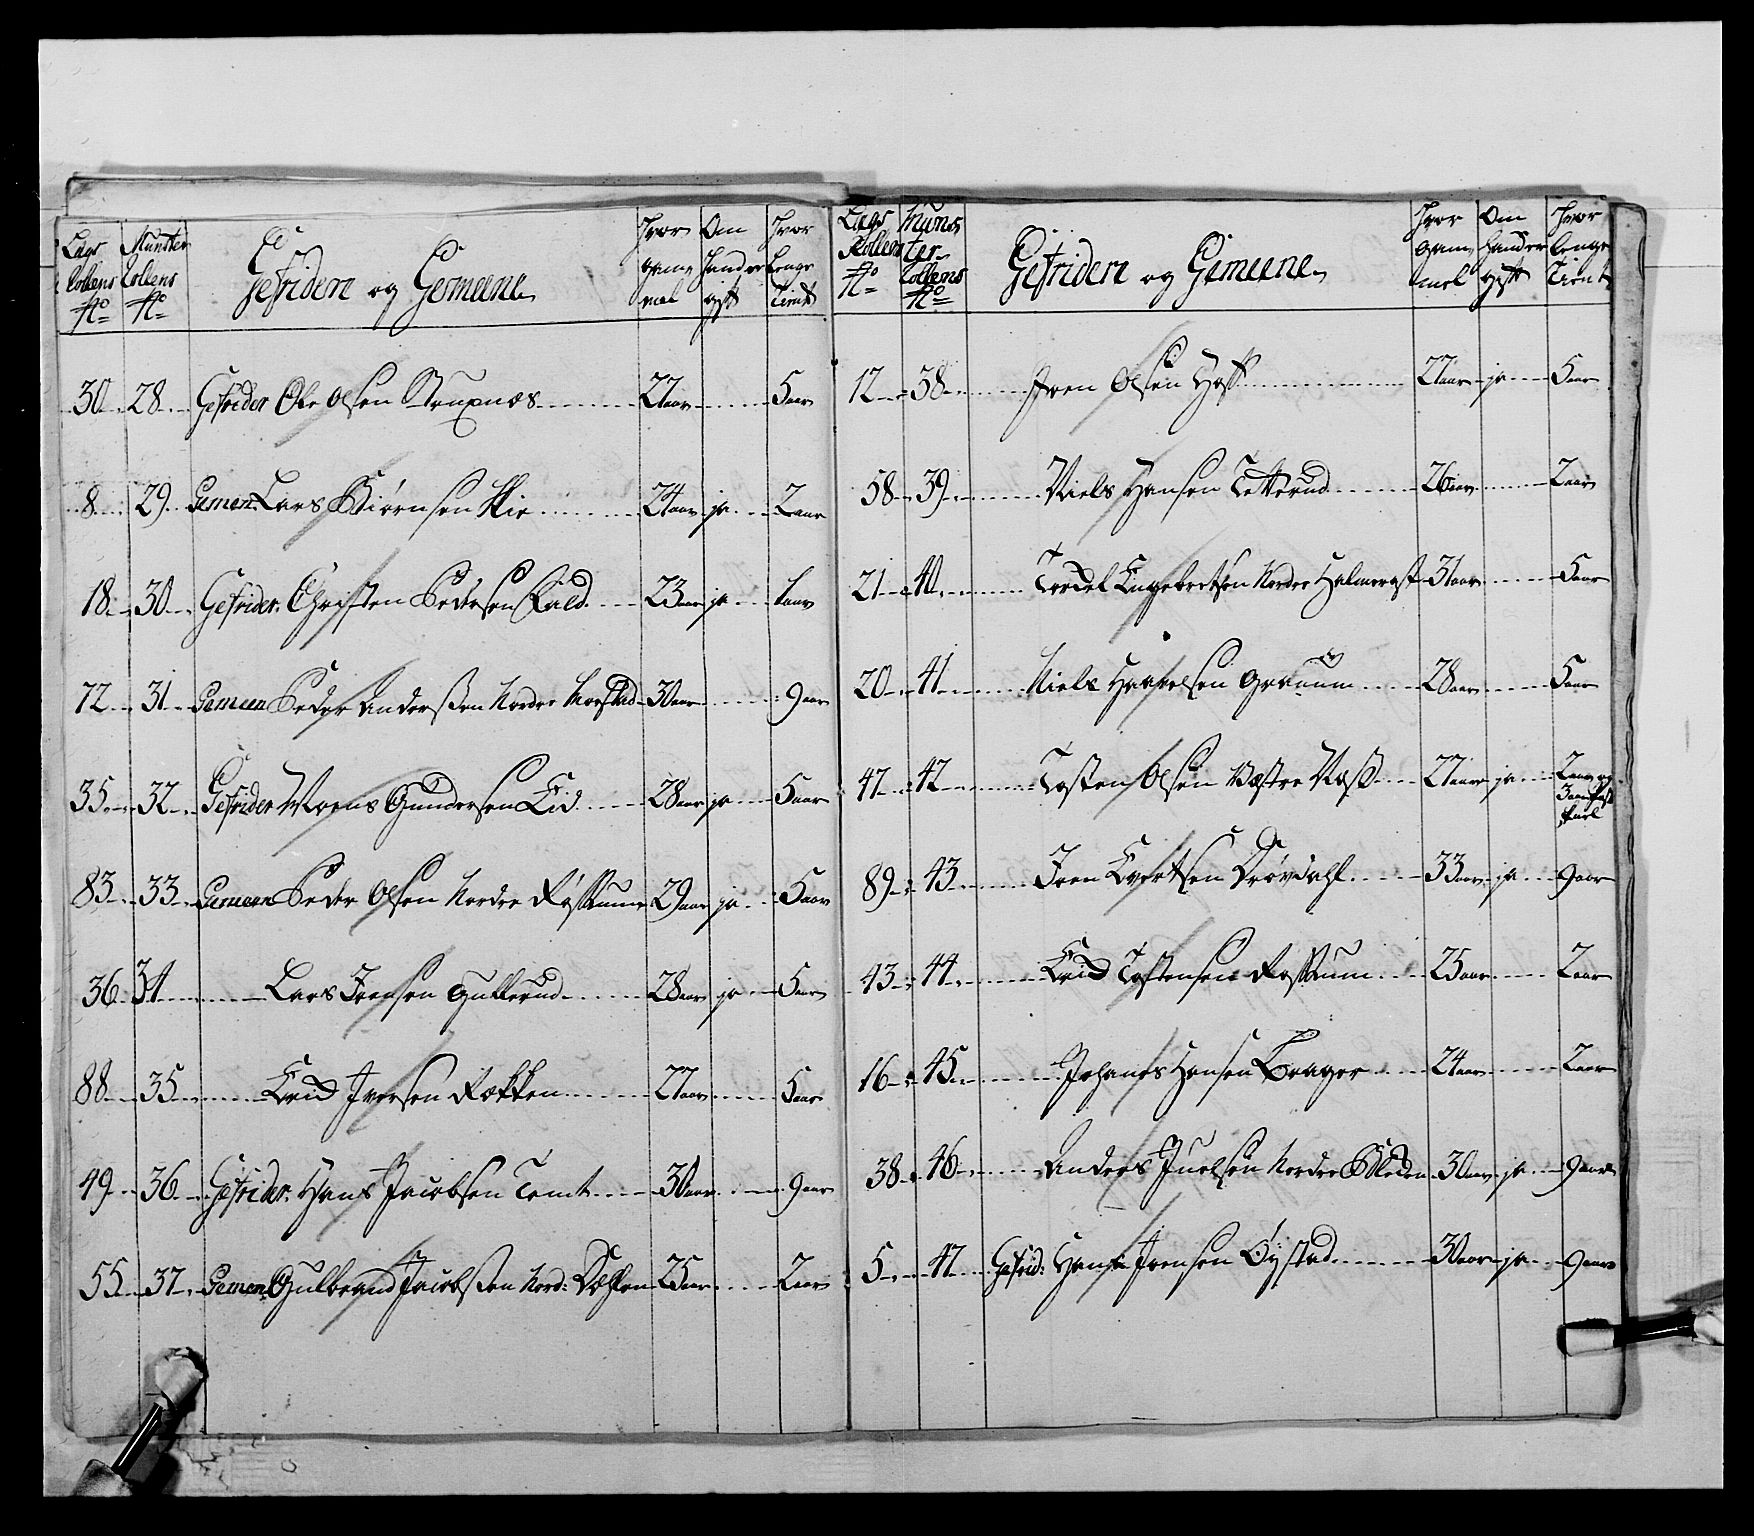 Lægs Rollens No Munster Rollens No Gefridere og Gemeene Hvor gam mel Om Hand er gift Hvor Lenge Tient
30 28 Gefrider Ole Olsen 27 aar 5 aar
8 29 Gemen Lars Biørnsen Lie 24 aar ja 2 aar
18 30 Gefrider Christen Pedersen Fald 23 aar ja 1 aar
72 31 Gemeen Peder Anderssen Nordre 30 aar 9 aar
35 32 Gefrider Moens Gundersen Lid 28 aar ja 5 aar
83 33 Gemeen Peder Olsen Nordre Røstum 29 aar ja 5 aar
36 34 Lars Joensen Gullerud 28 aar ja 5 aar
88 35 Knud Iversen Rækken 27 aar 5 aar
49 36 Gefrider Hans Jacobsen Tomt 30 aar 9 aar
55 37 Gemen Gulbrand Jacobssen Nord: Dæhlen 25 aar 2 aar
Lægs Rollens No Munster Rollens No Gefridere og Gemeene Hvor gam mel Om Hand er gift Hvor lenge Tient
12 38 Iven Olsen Hoff 27 aar ja 5 aar
58 39 Niels Hansen Tetterud 26 aar 2 aar
21 40 Trodel Engebretsen Nordre 31 aar 5 aar
20 41 Niels Haavelsen 28 aar 5 aar
47 42 Tosten Olsen Væstre Næss 27 aar ja 2 aar og
3 aar
89 43 Joen Evertsen Drøvdahl 33 aar ja 9 aar
43 44 Knud Tostensen Røstum 25 aar 2 aar
16 45 Johanes Hansen Brager 24 aar 2 aar
38 46 Anders Juelsen Nordre 30 aar ja 9 aar
5 47 Gefrid: Hans Joensen Øystad 30 aar ja 9 aar